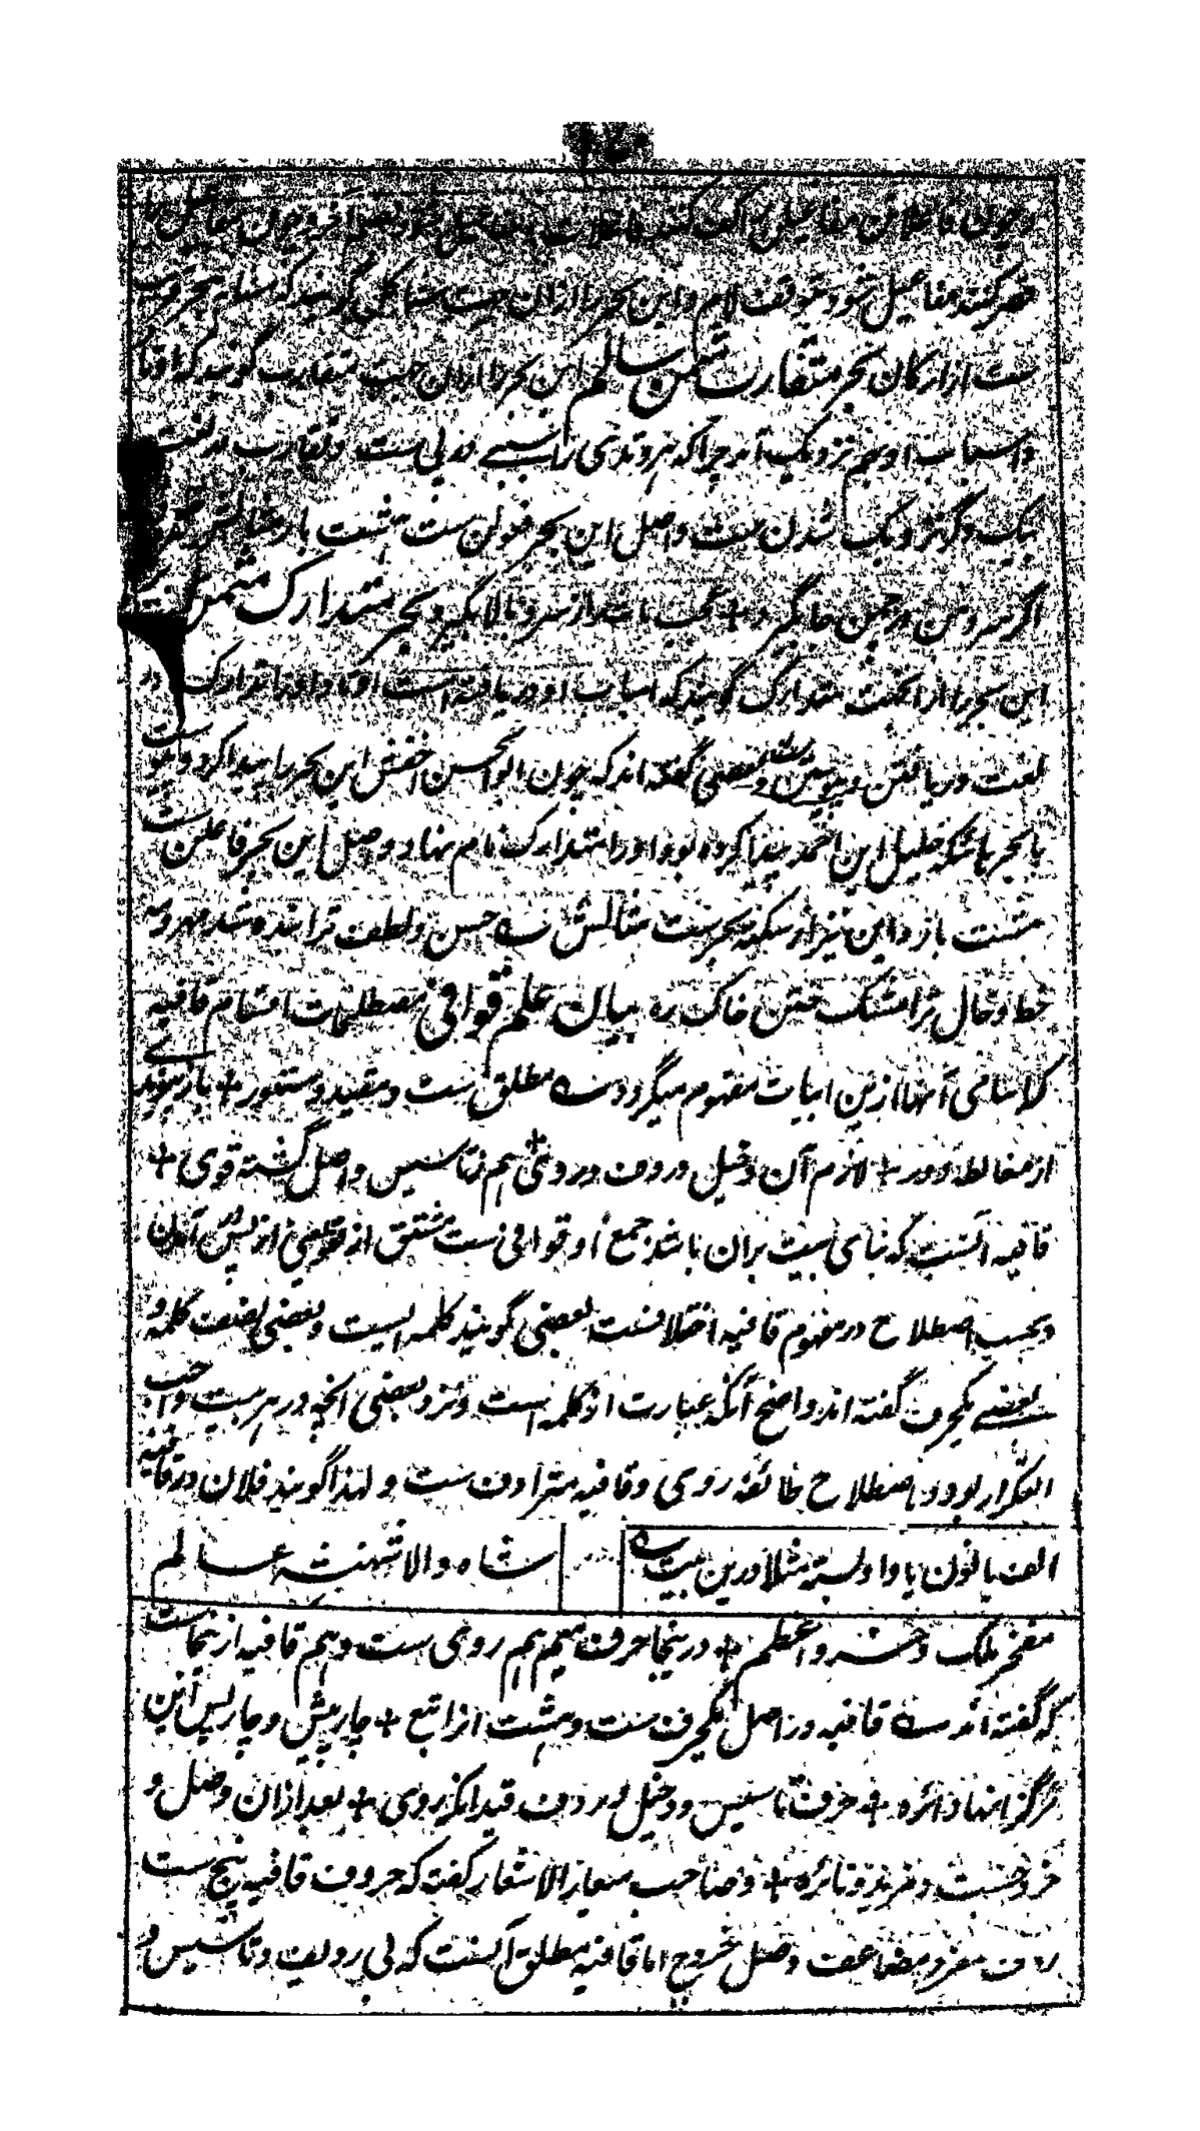 و چون فاعلاتن مفاعیلن را کف کنند فاعلات مفاعیل شود و بعضی آخر و چون مفاعیل را
قصر کنند مفاعیل شود بوقف لام و این بحر را ازان جهت مشاکل گویند که مشابه بحر قریب
ست از ارکان بحر متقارب مثمن سالم این بحر را ازان جهت متقارب گویند که اوتاد
و اسباب او بهم نزدیک اند چرا که هر وتدی را سببے در پی ست و تقارب در لغت
بیک دگر نزدیک شدن ست و اصل این بحر فعولن ست هشت بار مثالش
اگر سرو من در چمن جا بگیرد + عجب باشد ار سرو بالا بگیرد بحر متدارک مثمن
این بحر را از انجهت متدارک گویند که اسباب او دریافته است اوتاد او را تدارک در
لغت دریافتن و پیوستن ست و بعضی گفته اند که چون ابوالحسن اخفش این بحر را پیدا کرد و
با بحرهائیکه خلیل ابن احمد پیدا کرده بود او را متدارک نام نهاد و اصل این بحر فاعلن ست
هشت بار و این نیز از سکنه بحرست مثالش ے حسن و لطف ترا بنده شد مهر و مه
خط و خال ترا مشک ختن خاک ره بیان علم قوافی مصطلحات اقسام قافیه
کلاسامی آنها ازین ابیات مفهوم میگردد ے مطلق ست و مقید و مستور + باز پیوند
از مغالطه دور + لازم آن دخیل و ردف و روی + هم ز تاسیس و اصل گشته قوی +
قافیه آنست که بنای بیت بران باشد جمع او قوافی ست مشتق از قفو یعنی از پس آمدن
و بحسب اصطلاح در مفهوم قافیه اختلافست بعضی گویند کلمه ایست و بعضی بضعت کلمه و
بعضے یکحرف گفته اند و اصح آنکه عبارت از کلمه است و نزد بعضی انچه در هر بیت واجب
التکرار بود و باصطلاح طائفه روی و قافیه مترادف ست و لهذا گویند فلان در قافیه
الف یا نون یا واو بسته مثلا درین بیت ے شاه والا شهنشه عالم
مفخر ملک و خسرو اعظم + درینجا حرف میم هم روی ست و هم قافیه ازینجاست
که گفته اند ے قافیه در اصل یکحرف ست و هشت انرا تبع + چار پیش و چار پس این
مرکز انها دائره + حرف تاسیس و دخیل و ردف قید انگه روی + بعد ازان وصل و
خروجست و مزید و نائره + و صاحب معیارالاشعار گفته که حروف قافیه پنج ست
ردف مفرد و مضاعف وصل خروج اما قافیه مطلق آنست که بی ردیف و تاسیس و